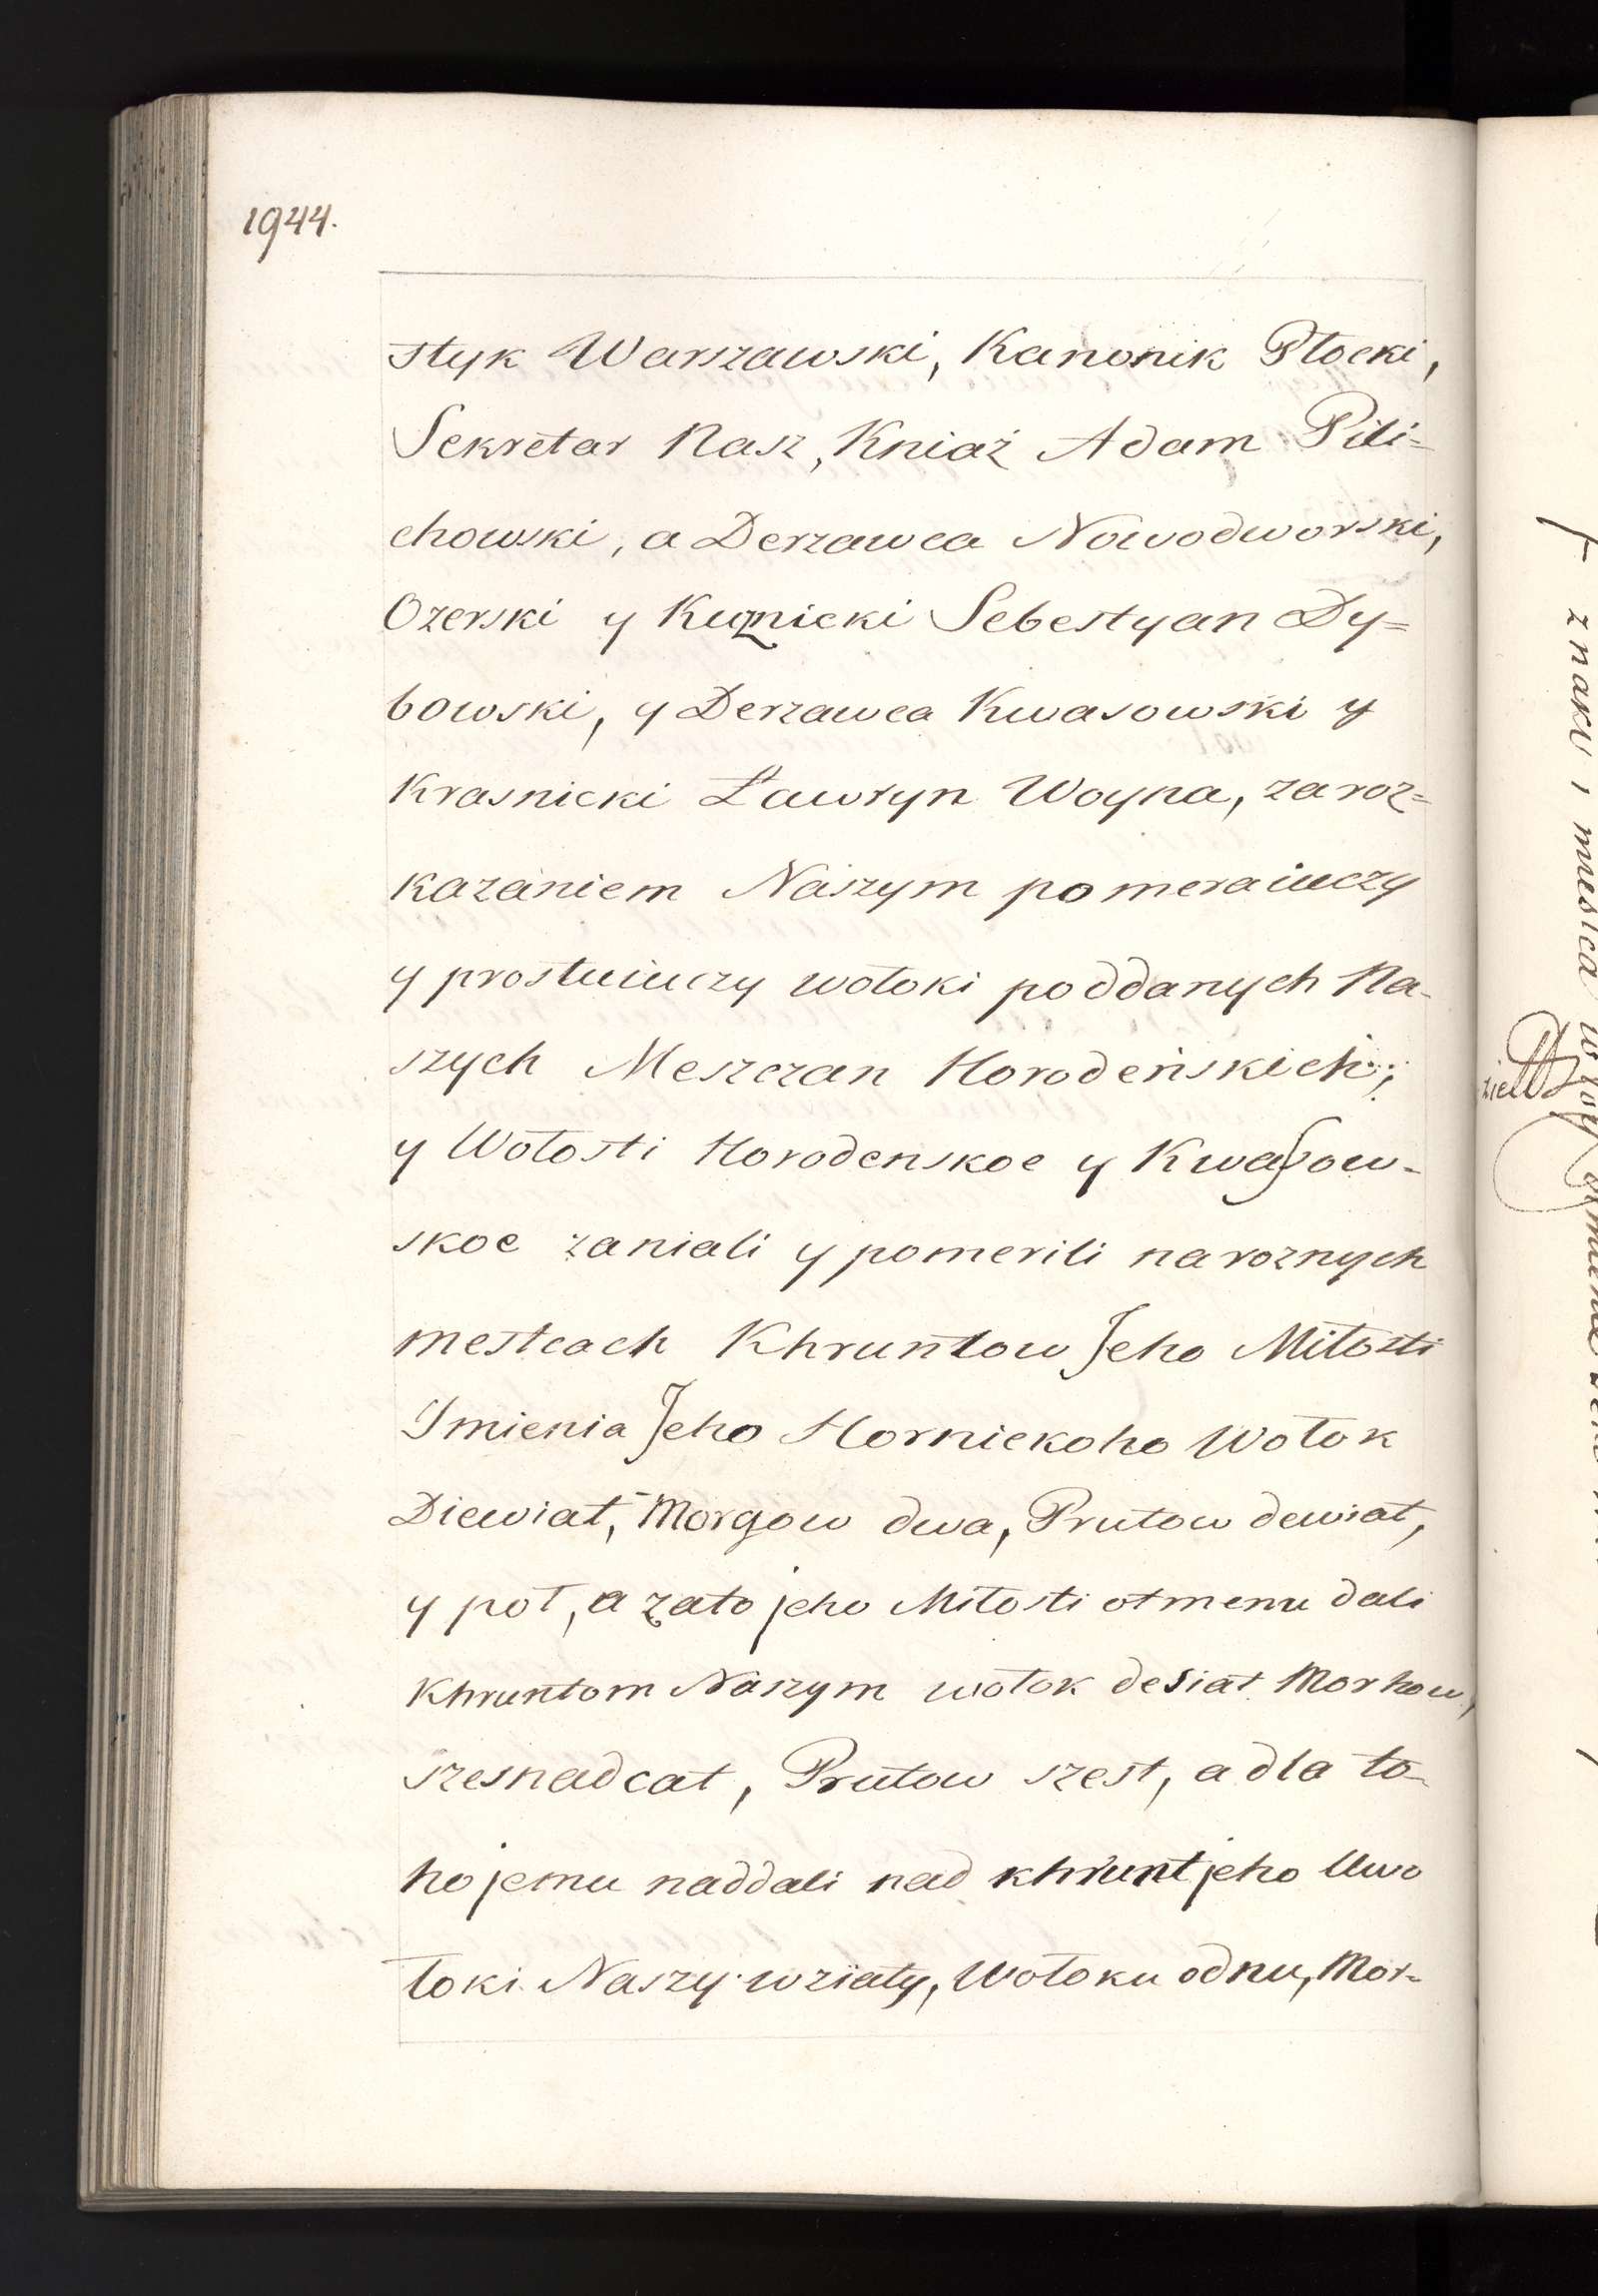 1944.
styk Warszawski, Kanonik Płocki,
Sekretar Nasz, Kniaź Adam Pili=
chowski, a Derzawca Nowodworski,
Ozerski y Kuznicki Sebestyan Dy=
bowski, y Derzawca Kwasowski y
Krasnicki Ławryn Woyna, za roz=
kazaniem Naszym pomeraiuczy
y prostuiuczy wołoki poddanych Na-
szych Meszczan Horodeńskich;
y Wołosti Horodenskoe y Kwasow-
skoe zaniali y pomerili na roznych
mestcach Khruntow Jeho Miłosti
Imienia Jeho Hornickoho Wołok
Diewiat, Morgow dwa, Prutow dewiat,
y poł, a zato jeho Miłosti otmenu dali
Khruntom Naszym wołok desiat Morhow,
szesnadcat, Prutow szest, a dla to-
ho jemu naddali nad khrunt jeho Uwo
łoki Naszy wziaty, Wołoku odnu, Mor-
znaku i mestca